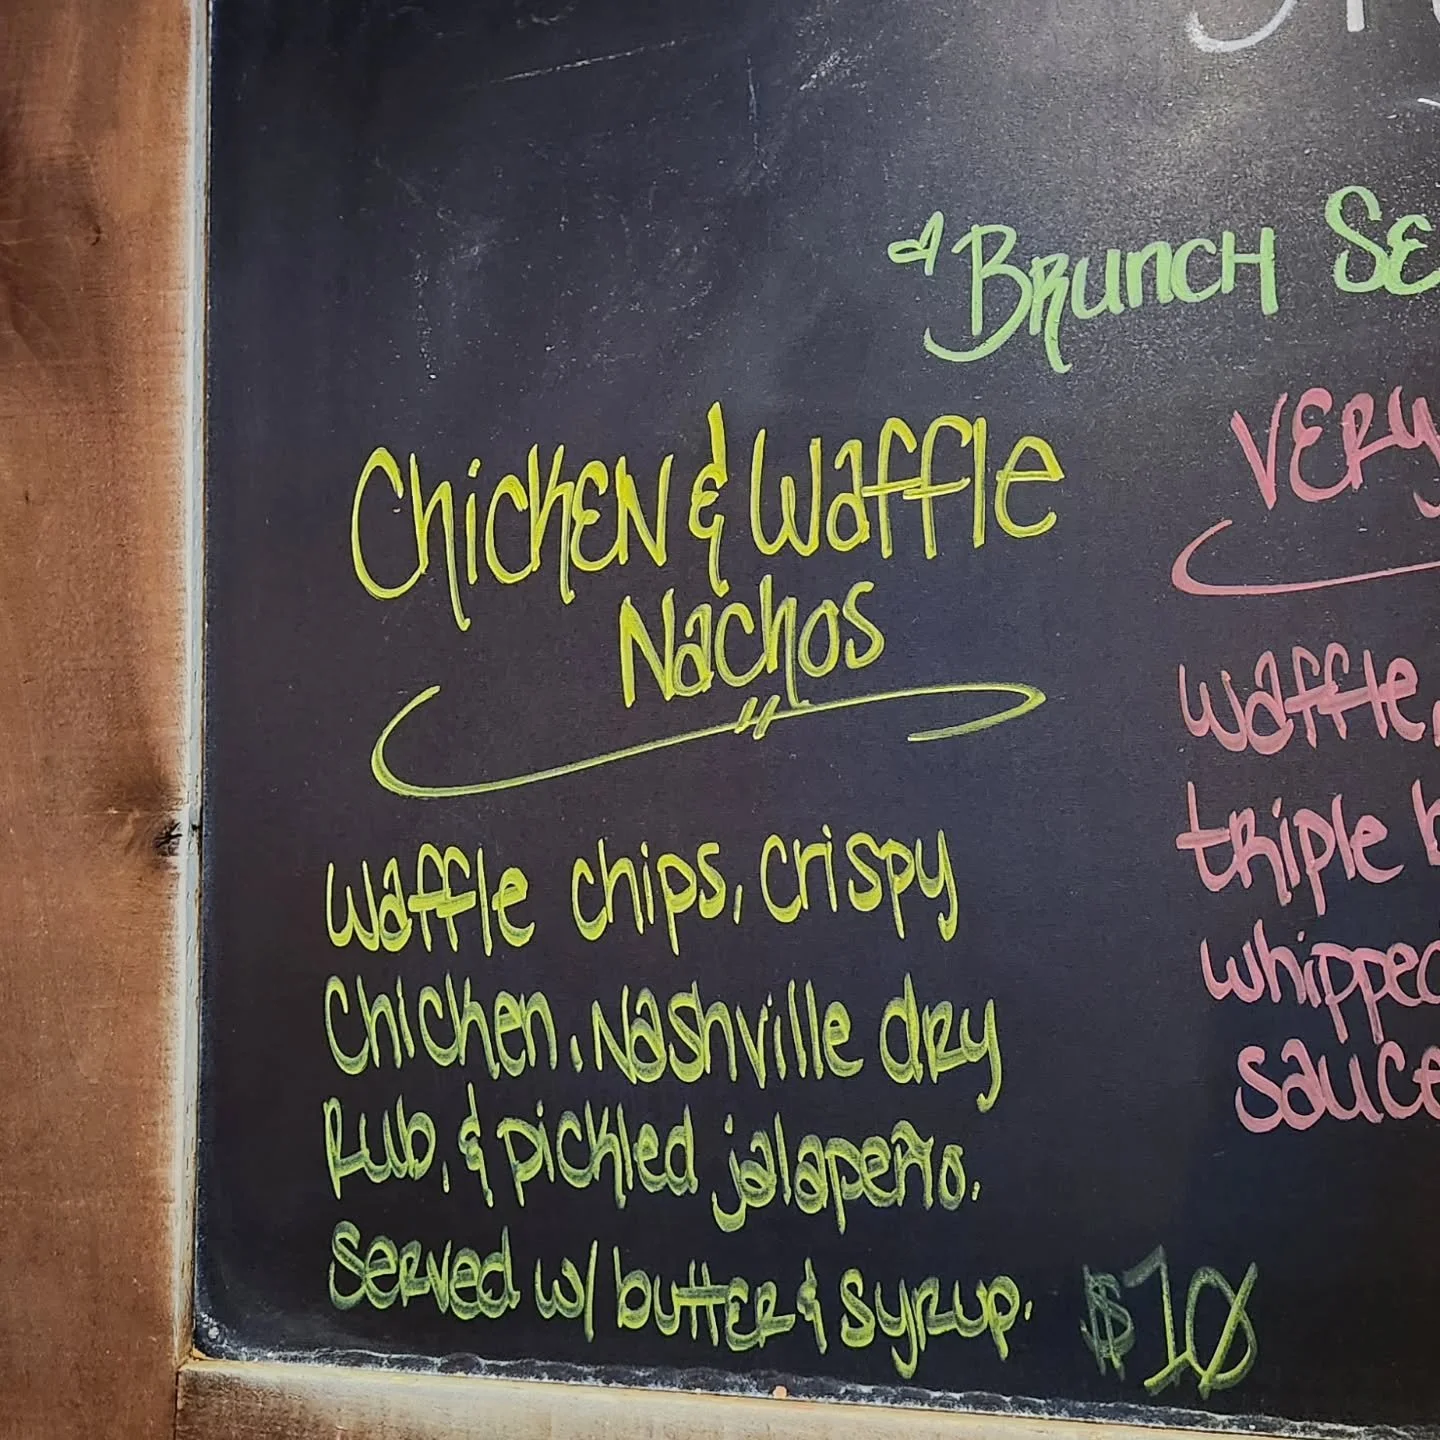 Brunch
Chicken & Waffle
Nachos
waffle chips, crispy
chicken, Nashville dry
rub, & pickled jalapeño.
Served w/ butter & syrup. $10
Very
waffle,
triple
whipped
sauce